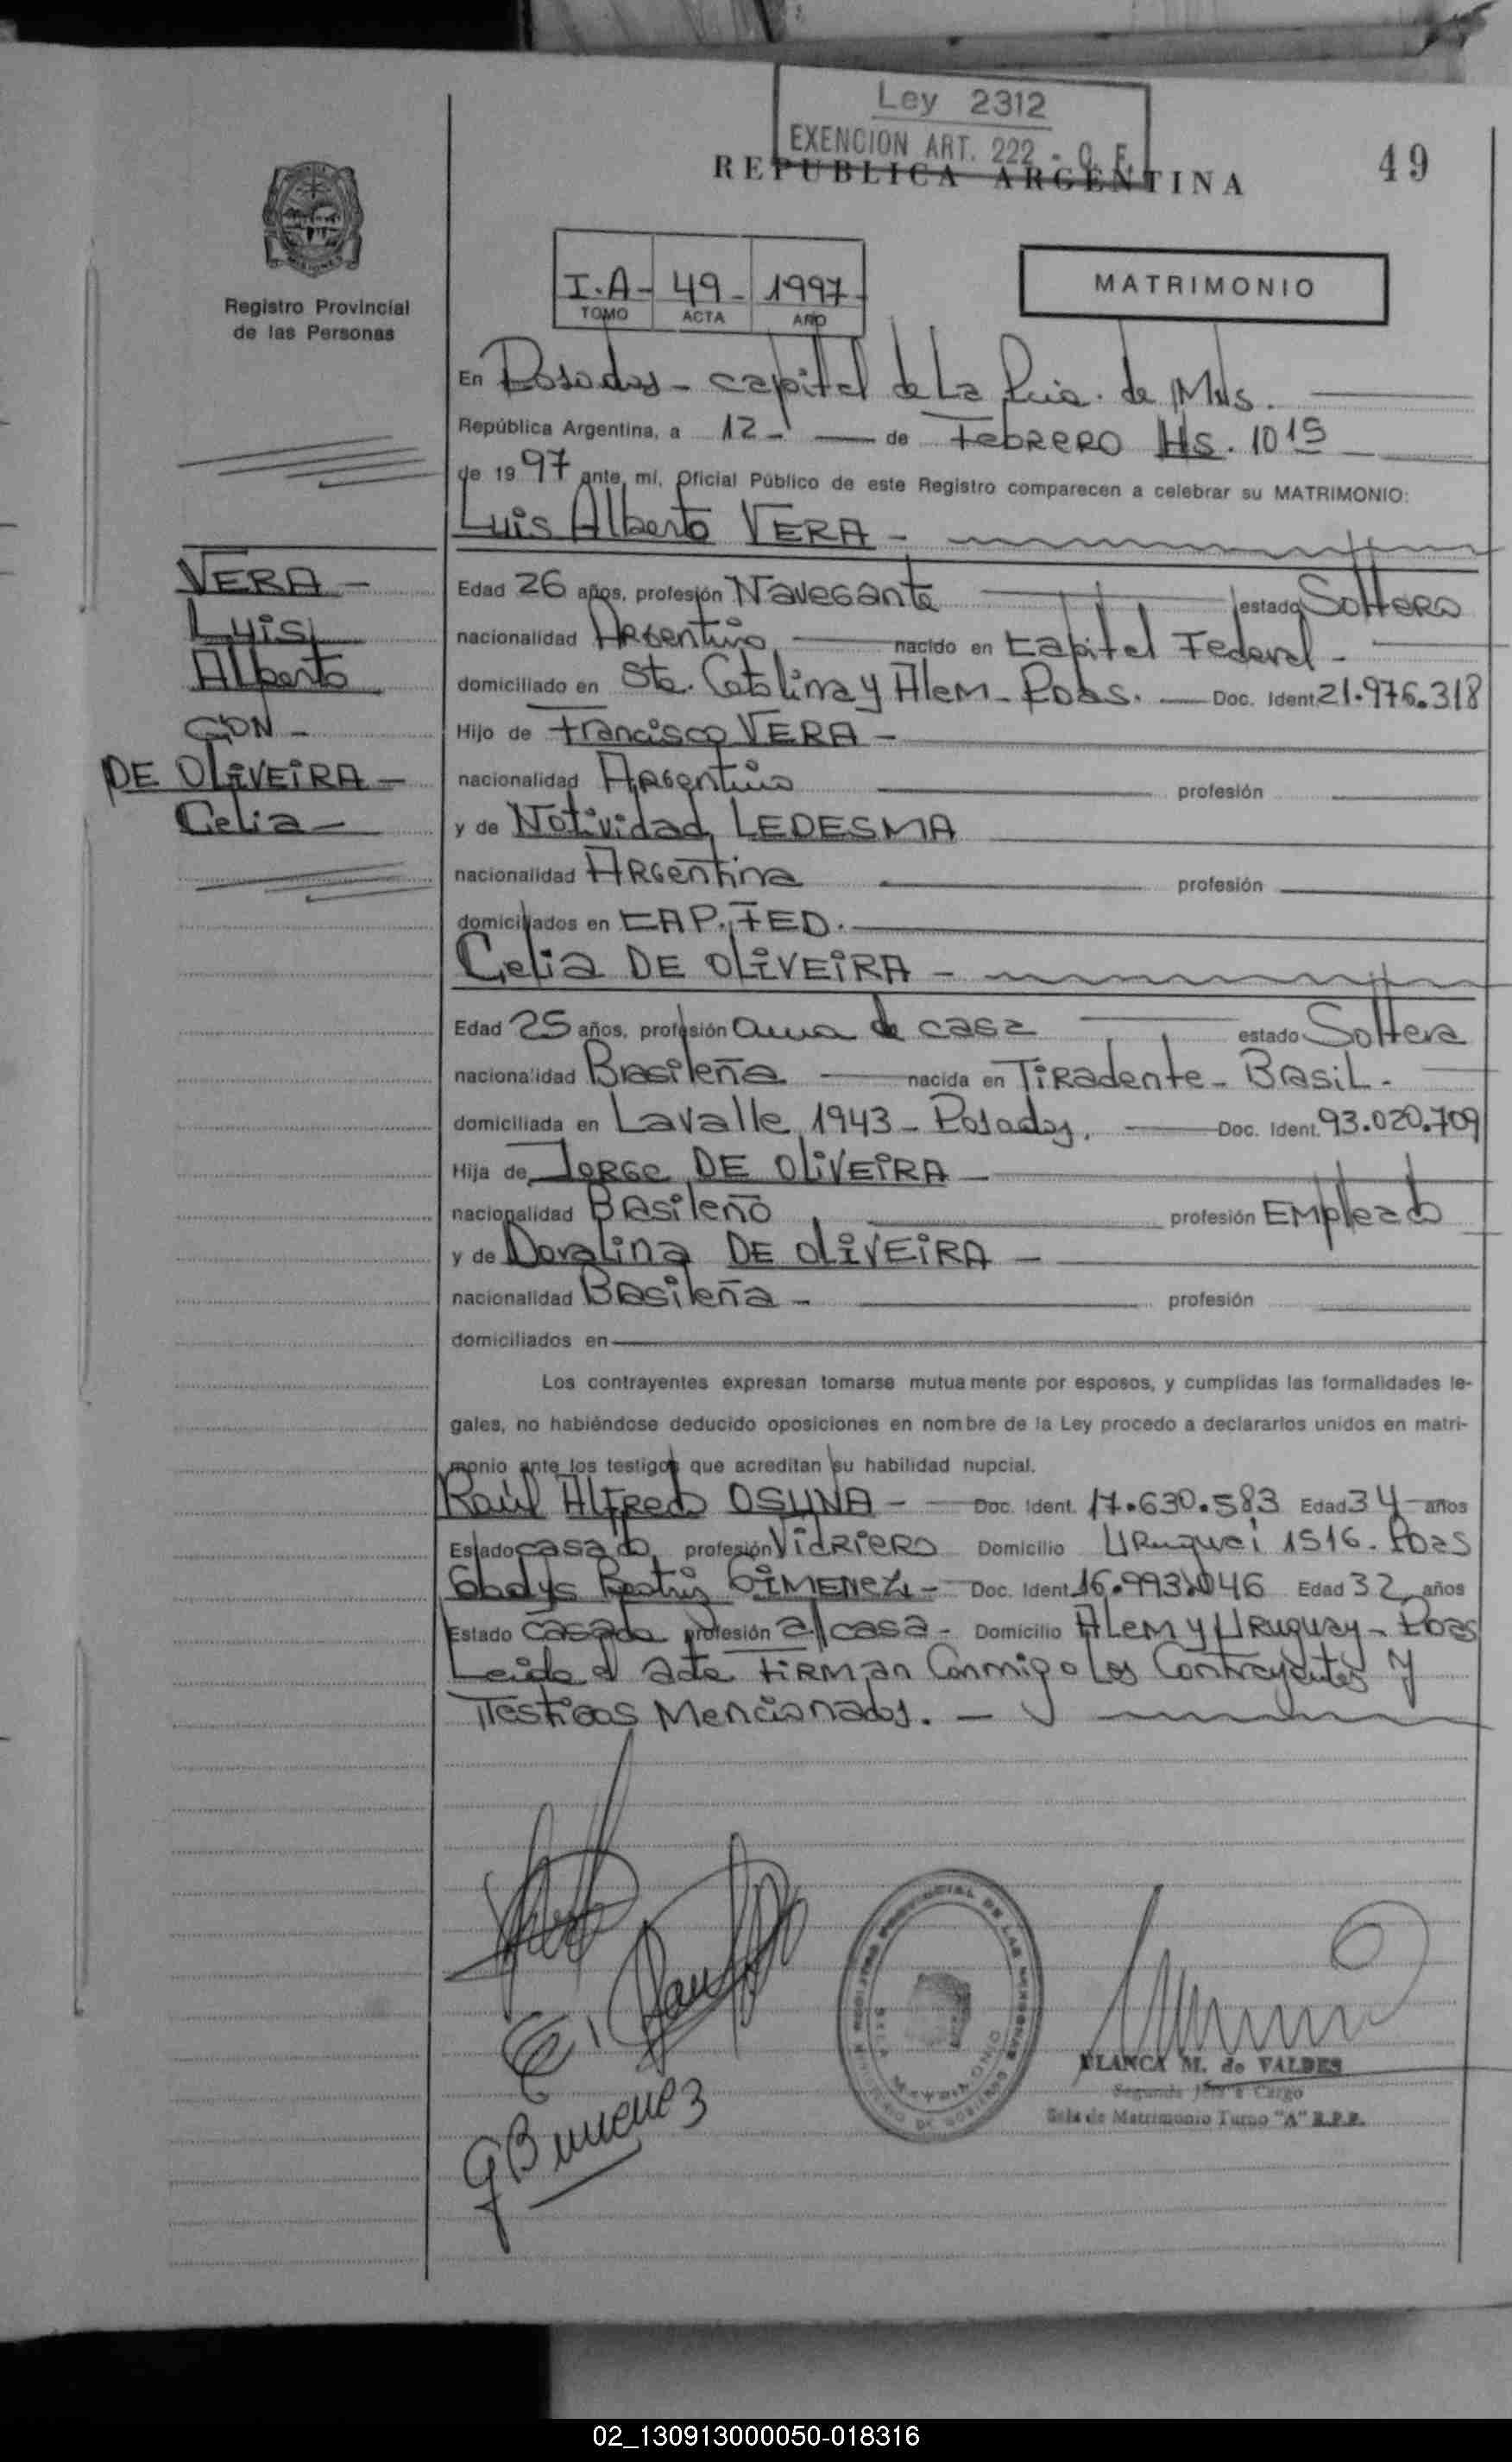 Ley 2312
EXENCION ART. 222 - C. F.
REPUBLICA ARGENTINA
49
MISIONES
Registro Provincial
de las Personas
I.A - 49 - 1997 -
TOMO ACTA AÑO
MATRIMONIO
En Posadas - capital de La Pcia. de Mns.
República Argentina, a 12 - de Febrero Hs. 10 15
de 1997 ante mí, Oficial Público de este Registro comparecen a celebrar su MATRIMONIO:
Luis Alberto VERA -
VERA -
Luis
Alberto
CON -
DE OLIVEIRA -
Celia -
Edad 26 años, profesión Navegante estado Soltero
nacionalidad Argentino nacido en Capital Federal -
domiciliado en Sta. Catalina y Alem - Pdas. - Doc. Ident. 21.976.318
Hijo de Francisco VERA -
nacionalidad Argentino profesión
y de Natividad LEDESMA
nacionalidad Argentina profesión
domiciliados en CAP. FED.
Celia DE OLIVEIRA -
Edad 25 años, profesión ama de casa estado Soltera
nacionalidad Brasileña nacida en Tiradente - Brasil -
domiciliada en Lavalle 1943 - Posadas. Doc. Ident. 93.020.709
Hija de Jorge DE OLIVEIRA -
nacionalidad Brasileño profesión Empleado
y de Doralina DE OLIVEIRA -
nacionalidad Brasileña - profesión
domiciliados en
Los contrayentes expresan tomarse mutuamente por esposos, y cumplidas las formalidades le-
gales, no habiéndose deducido oposiciones en nombre de la Ley procedo a declararlos unidos en matri-
monio ante los testigos que acreditan su habilidad nupcial.
Raúl Alfredo OSUNA - Doc. Ident. 17.630.583 Edad 34 años
Estado casado, profesión Vidriero Domicilio Uruguai 1516. Pdas
Gladys Beatriz GIMENEZ - Doc. Ident. 16.993.046 Edad 32 años
Estado casada profesión a/casa - Domicilio Alem y Uruguay - Pdas
Leida el acta firman Conmigo los Contrayentes y
Testigos Mencionados. -
GBimenez
BLANCA M. de VALDES
Segunda Jefe a Cargo
Sala de Matrimonio Turno "A" R.P.P.
02_130913000050-018316